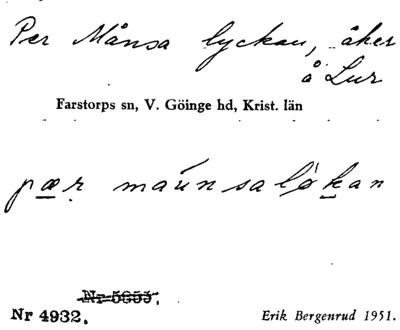 Per Månsa lyckan, åker
å Lur
Farstorps sn, V. Göinge hd, Krist. län
pær máunsaløkan
Nr 5653.
Nr 4932.
Erik Bergenrud 1951.